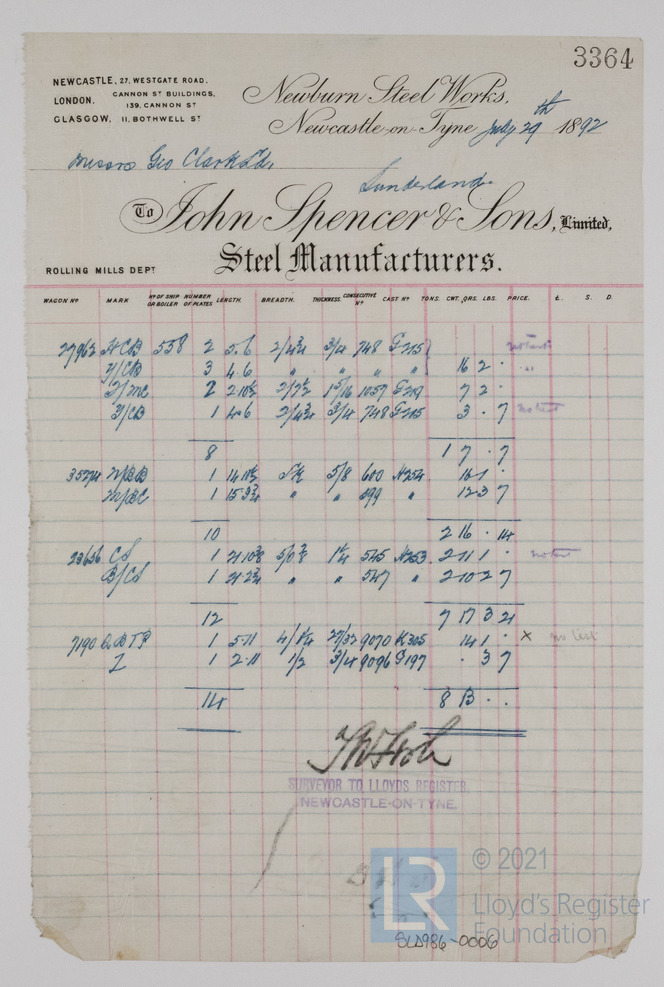 3364
NEWCASTLE, 27. WESTGATE ROAD.
LONDON. CANNON ST BUILDINGS, 139. CANNON ST
GLASGOW, 11. BOTHWELL ST
Newburn Steel Works,
Newcastle-on-Tyne July 29th 1892
Messrs Geo Clark Ld,
Sunderland.
To John Spencer & Sons, Limited,
Steel Manufacturers.
ROLLING MILLS DEPT
WAGON No MARK No OF SHIP OR BOILER NUMBER OF PLATES LENGTH. BREADTH. THICKNESS. CONSECUTIVE No CAST No TONS. CWT. QRS. LBS. PRICE. £. S. D.
27962 558 2 5.6 2/4¾ 3/4 748 G215
Y/CB 3 4.6 " " " " 16 2 .
2 2 10½ 2/7½ 15/16 1057 7 2 .
Y/CB 1 4.6 2/4¾ 3/4 748 G215 3 . 7 no test
8 1 7 . 7
1 14 10½ 5/8 600 N254 16 1 .
1 15.9¾ " " 599 " 12 3 7
10 2 16 . 14
23656 CS 1 21 10⅜ 5/0⅜ 1¼ 545 N253 2 11 1 . no test
B/CS 1 21.2¾ " " 547 " 2 10 2 7
12 7 17 3 21
7190 1 5.11 4/1¼ 27/32 9070 K305 14 1 . x no test
1 2.11 1/2 3/4 9096 G197 . 3 7
14 8 13 . .
SURVEYOR TO LLOYDS REGISTER.
NEWCASTLE-ON-TYNE.
LR
© 2021
Lloyd's Register
Foundation
SLD986-0006